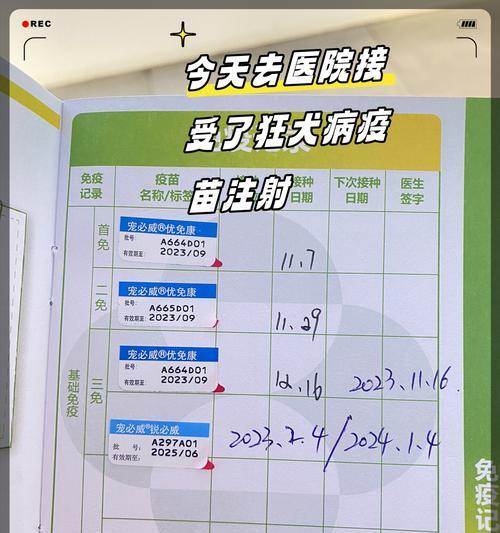 REC
今天去医院接
受了狂犬病疫
苗注射
免疫记录 疫苗名称/标签 接种日期 下次接种日期 医生签字
基础免疫
首免
宠必威®优免康
批号: A664D01
有效期至: 2023/09
11.7
二免
宠必威®优免康
批号: A665D01
有效期至: 2023/09
11.29
三免
宠必威®优免康
批号: A664D01
有效期至: 2023/09
12.16 2023.11.16.
宠必威®锐必威
批 号: A297A01
有效期至: 2025/06
2023.2.4/2024.1.4
免疫记